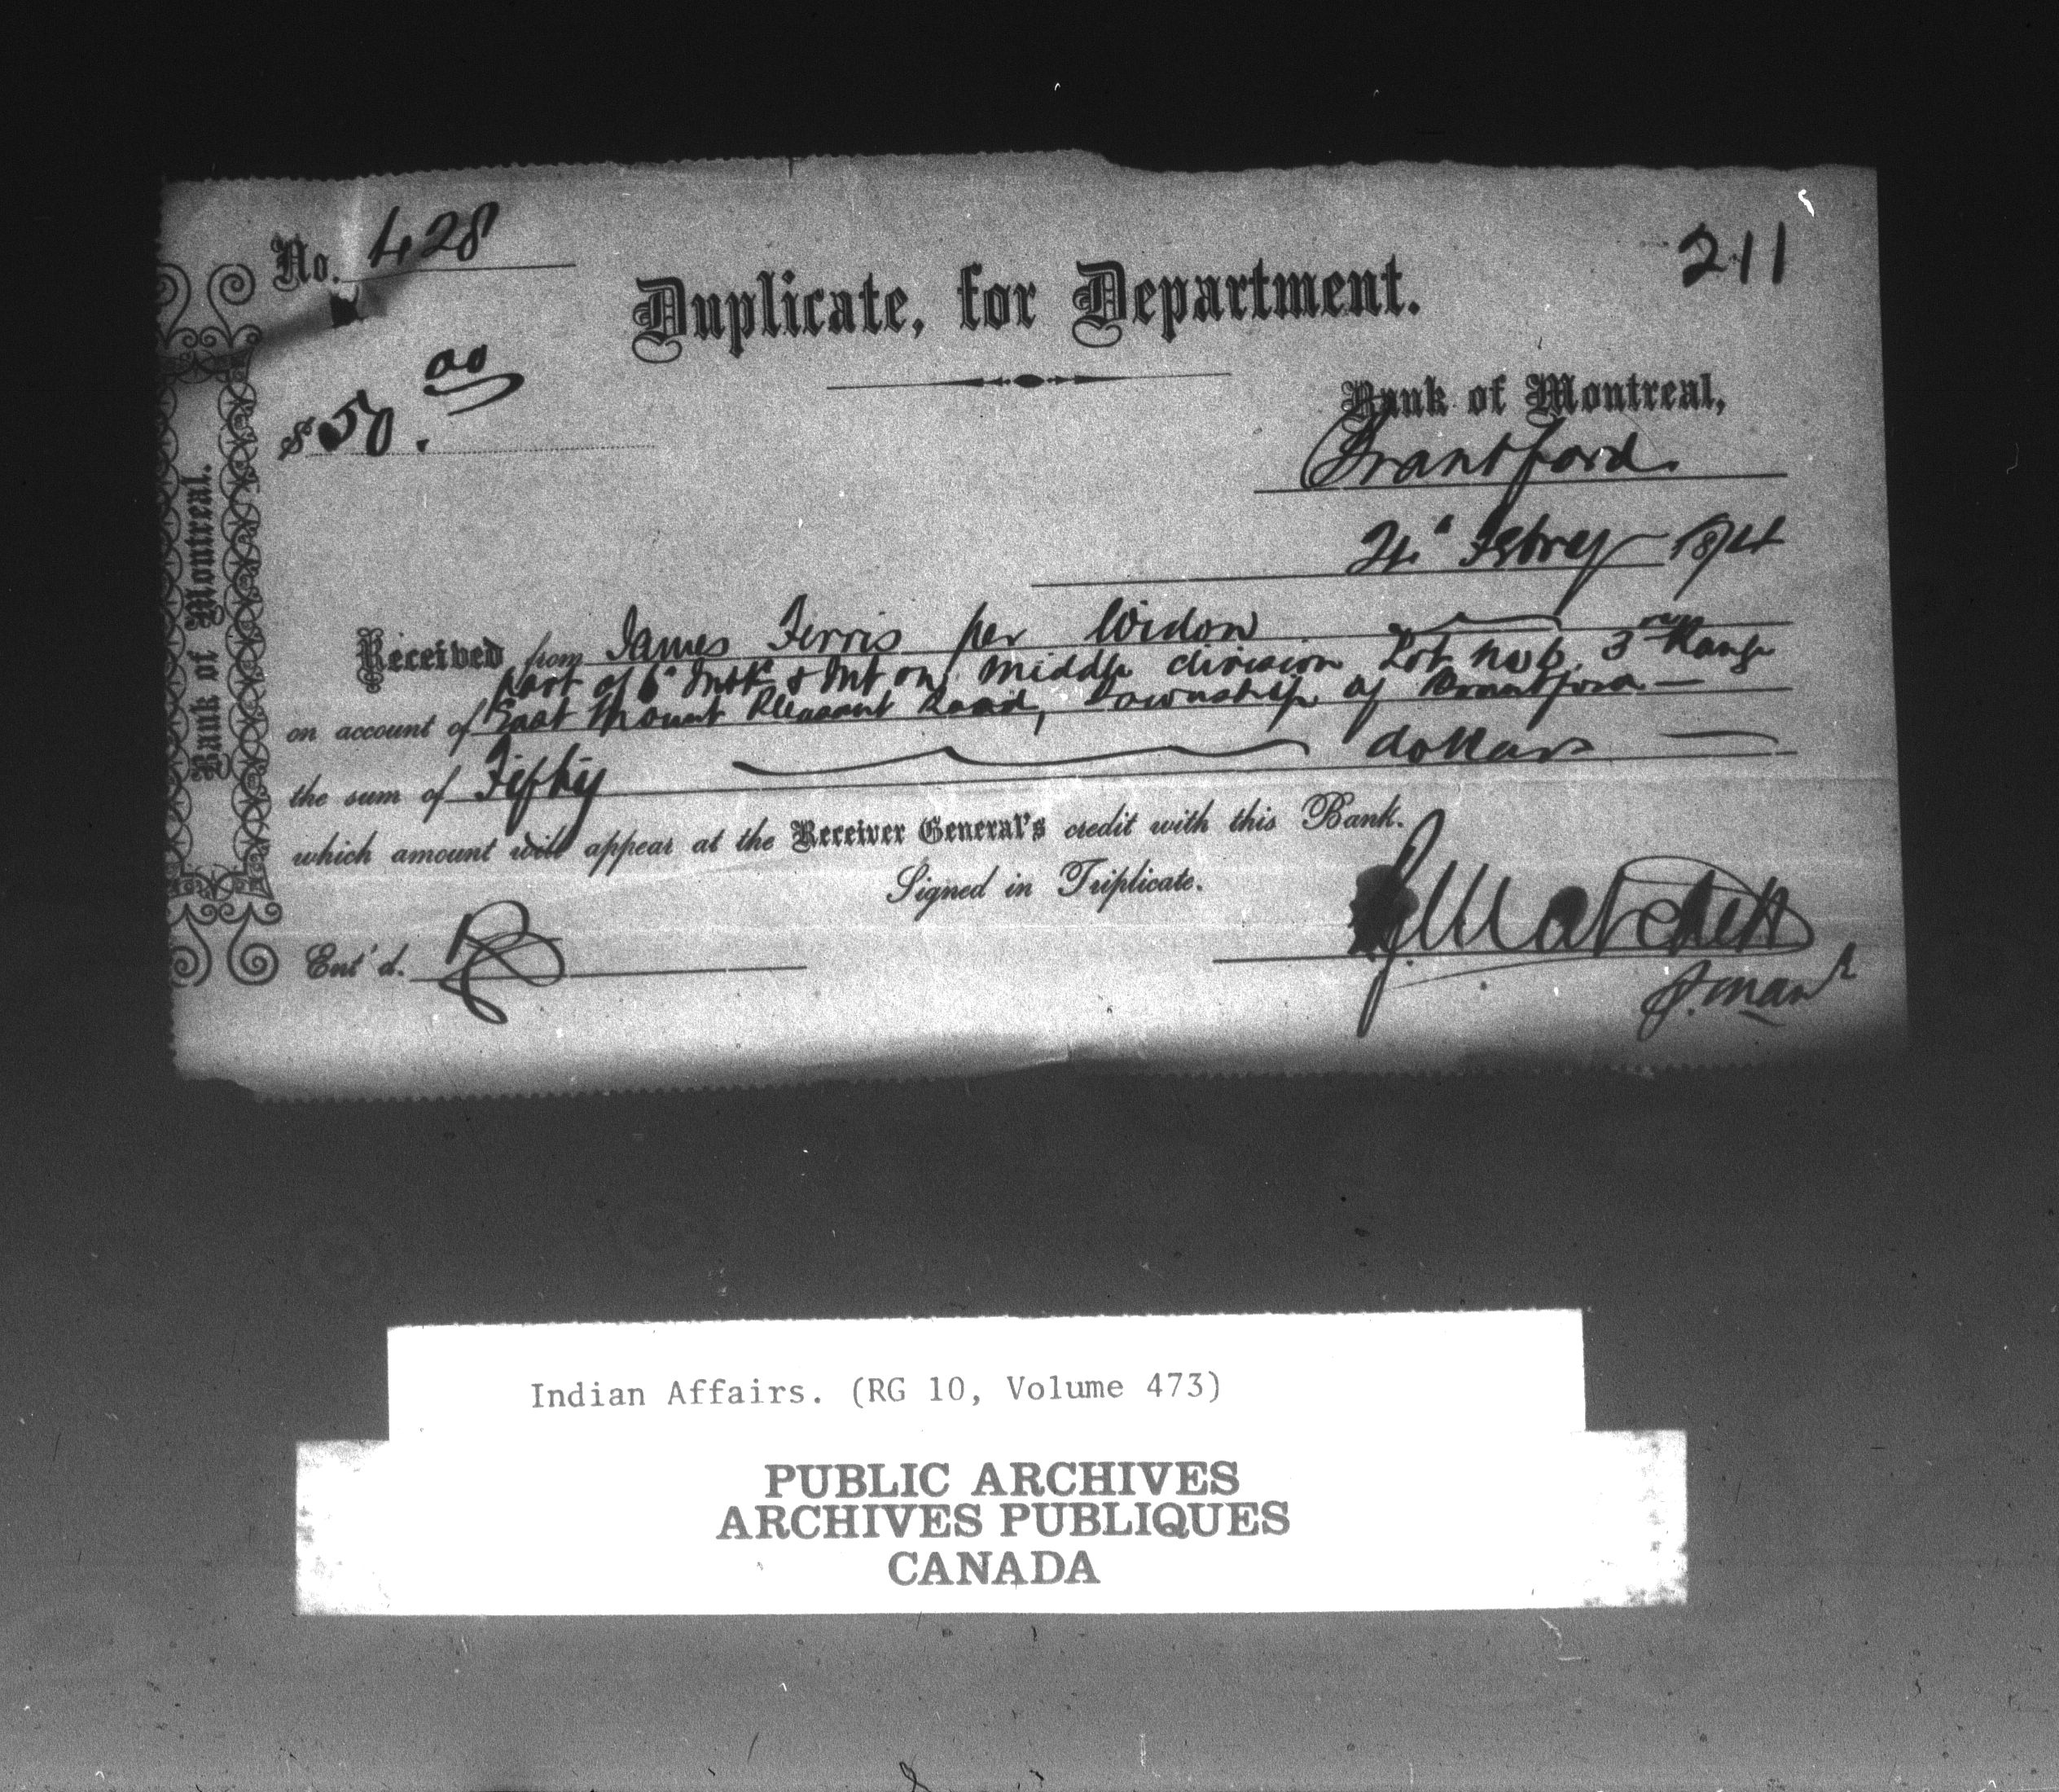 No. 428
211
Duplicate, for Department.
$50.00
Bank of Montreal,
Brantford
24" Febry 1874
Received from James Ferris per Widow
part of 6" Instt & Int on middle division Lot No 6, 3rd Range
on account of East Mount Pleasant Road, Township of Brantford —
the sum of Fifty dollars —
which amount will appear at the Receiver General's credit with this Bank.
Signed in Triplicate.
Ent'd.
Bank of Montreal.
Indian Affairs. (RG 10, Volume 473)
PUBLIC ARCHIVES
ARCHIVES PUBLIQUES
CANADA